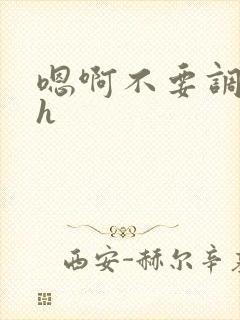 嗯啊不要調
h
西安-赫尔辛